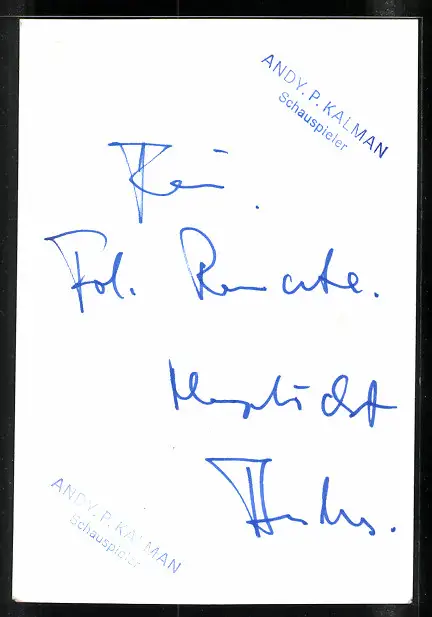 ANDY. P. KALMAN
Schauspieler
Für
Frl. Renate.
Herzlichst
ANDY. P. KALMAN
Schauspieler